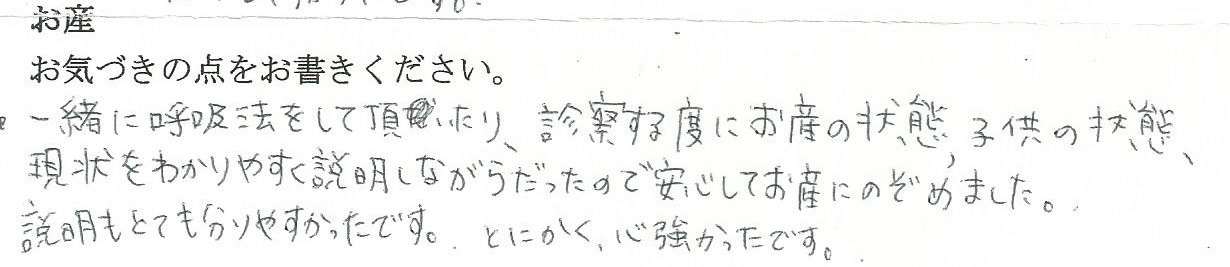 お産
お気づきの点をお書きください。
一緒に呼吸法をして頂いたり、診察する度にお産の状態、子供の状態、
現状をわかりやすく説明しながらだったので安心してお産にのぞめました。
説明もとても分りやすかったです。とにかく、心強かったです。